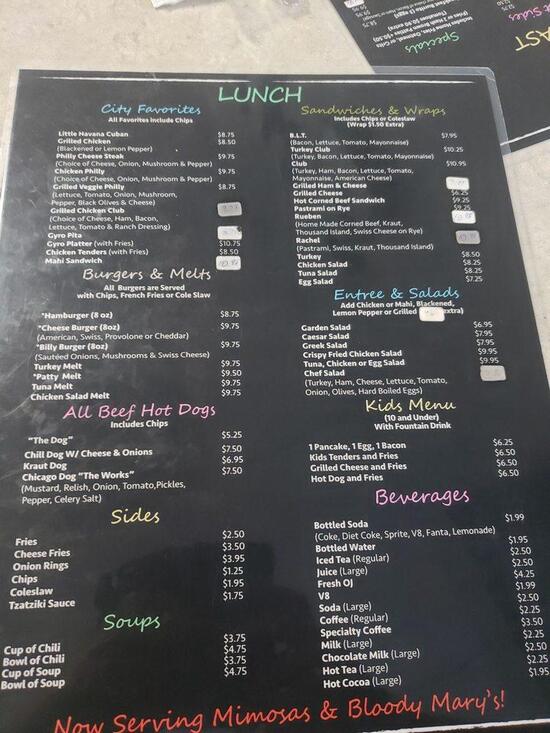 LUNCH
City Favorites
All Favorites Include Chips
Little Havana Cuban $8.75
Grilled Chicken $8.50
(Blackened or Lemon Pepper)
Philly Cheese Steak $9.75
(Choice of Cheese, Onion, Mushroom & Pepper)
Chicken Philly $9.75
(Choice of Cheese, Onion, Mushroom & Pepper)
Grilled Veggie Philly $8.75
(Lettuce, Tomato, Onion, Mushroom,
Pepper, Black Olives & Cheese)
Grilled Chicken Club
(Choice of Cheese, Ham, Bacon,
Lettuce, Tomato & Ranch Dressing)
Gyro Pita
Gyro Platter (with Fries) $10.75
Chicken Tenders (with Fries) $8.50
Mahi Sandwich
Burgers & Melts
All Burgers are Served
with Chips, French Fries or Cole Slaw
*Hamburger (8 oz) $8.75
*Cheese Burger (8oz) $9.75
(American, Swiss, Provolone or Cheddar)
*Billy Burger (8oz) $9.75
(Sautéed Onions, Mushrooms & Swiss Cheese)
Turkey Melt $9.75
*Patty Melt $9.50
Tuna Melt $9.75
Chicken Salad Melt $9.75
All Beef Hot Dogs
Includes Chips
"The Dog" $5.25
Chili Dog W/ Cheese & Onions $7.50
Kraut Dog $6.95
Chicago Dog "The Works" $7.50
(Mustard, Relish, Onion, Tomato,Pickles,
Pepper, Celery Salt)
Sides
Fries $2.50
Cheese Fries $3.50
Onion Rings $3.95
Chips $1.25
Coleslaw $1.95
Tzatziki Sauce $1.75
Soups
Cup of Chili $3.75
Bowl of Chili $4.75
Cup of Soup $3.75
Bowl of Soup $4.75
Sandwiches & Wraps
Includes Chips or Coleslaw
(Wrap $1.50 Extra)
B.L.T. $7.95
(Bacon, Lettuce, Tomato, Mayonnaise)
Turkey Club $10.25
(Turkey, Bacon, Lettuce, Tomato, Mayonnaise)
Club $10.95
(Turkey, Ham, Bacon, Lettuce, Tomato,
Mayonnaise, American Cheese)
Grilled Ham & Cheese
Grilled Cheese $6.25
Hot Corned Beef Sandwich $9.25
Pastrami on Rye $9.25
Rueben
(Home Made Corned Beef, Kraut,
Thousand Island, Swiss Cheese on Rye)
Rachel
(Pastrami, Swiss, Kraut, Thousand Island)
Turkey $8.50
Chicken Salad $8.25
Tuna Salad $8.25
Egg Salad $7.25
Entree & Salads
Add Chicken or Mahi, Blackened,
Lemon Pepper or Grilled extra)
Garden Salad $6.95
Caesar Salad $7.95
Greek Salad $7.95
Crispy Fried Chicken Salad $9.95
Tuna, Chicken or Egg Salad $9.95
Chef Salad
(Turkey, Ham, Cheese, Lettuce, Tomato,
Onion, Olives, Hard Boiled Eggs)
Kids Menu
(10 and Under)
With Fountain Drink
1 Pancake, 1 Egg, 1 Bacon $6.25
Kids Tenders and Fries $6.50
Grilled Cheese and Fries $6.50
Hot Dog and Fries $6.50
Beverages
Bottled Soda $1.99
(Coke, Diet Coke, Sprite, V8, Fanta, Lemonade)
Bottled Water $1.95
Iced Tea (Regular) $2.50
Juice (Large) $2.50
Fresh OJ $4.25
V8 $1.99
Soda (Large) $2.50
Coffee (Regular) $2.25
Specialty Coffee $3.50
Milk (Large) $2.25
Chocolate Milk (Large) $2.50
Hot Tea (Large) $2.25
Hot Cocoa (Large) $1.95
Now Serving Mimosas & Bloody Mary's!
Specials